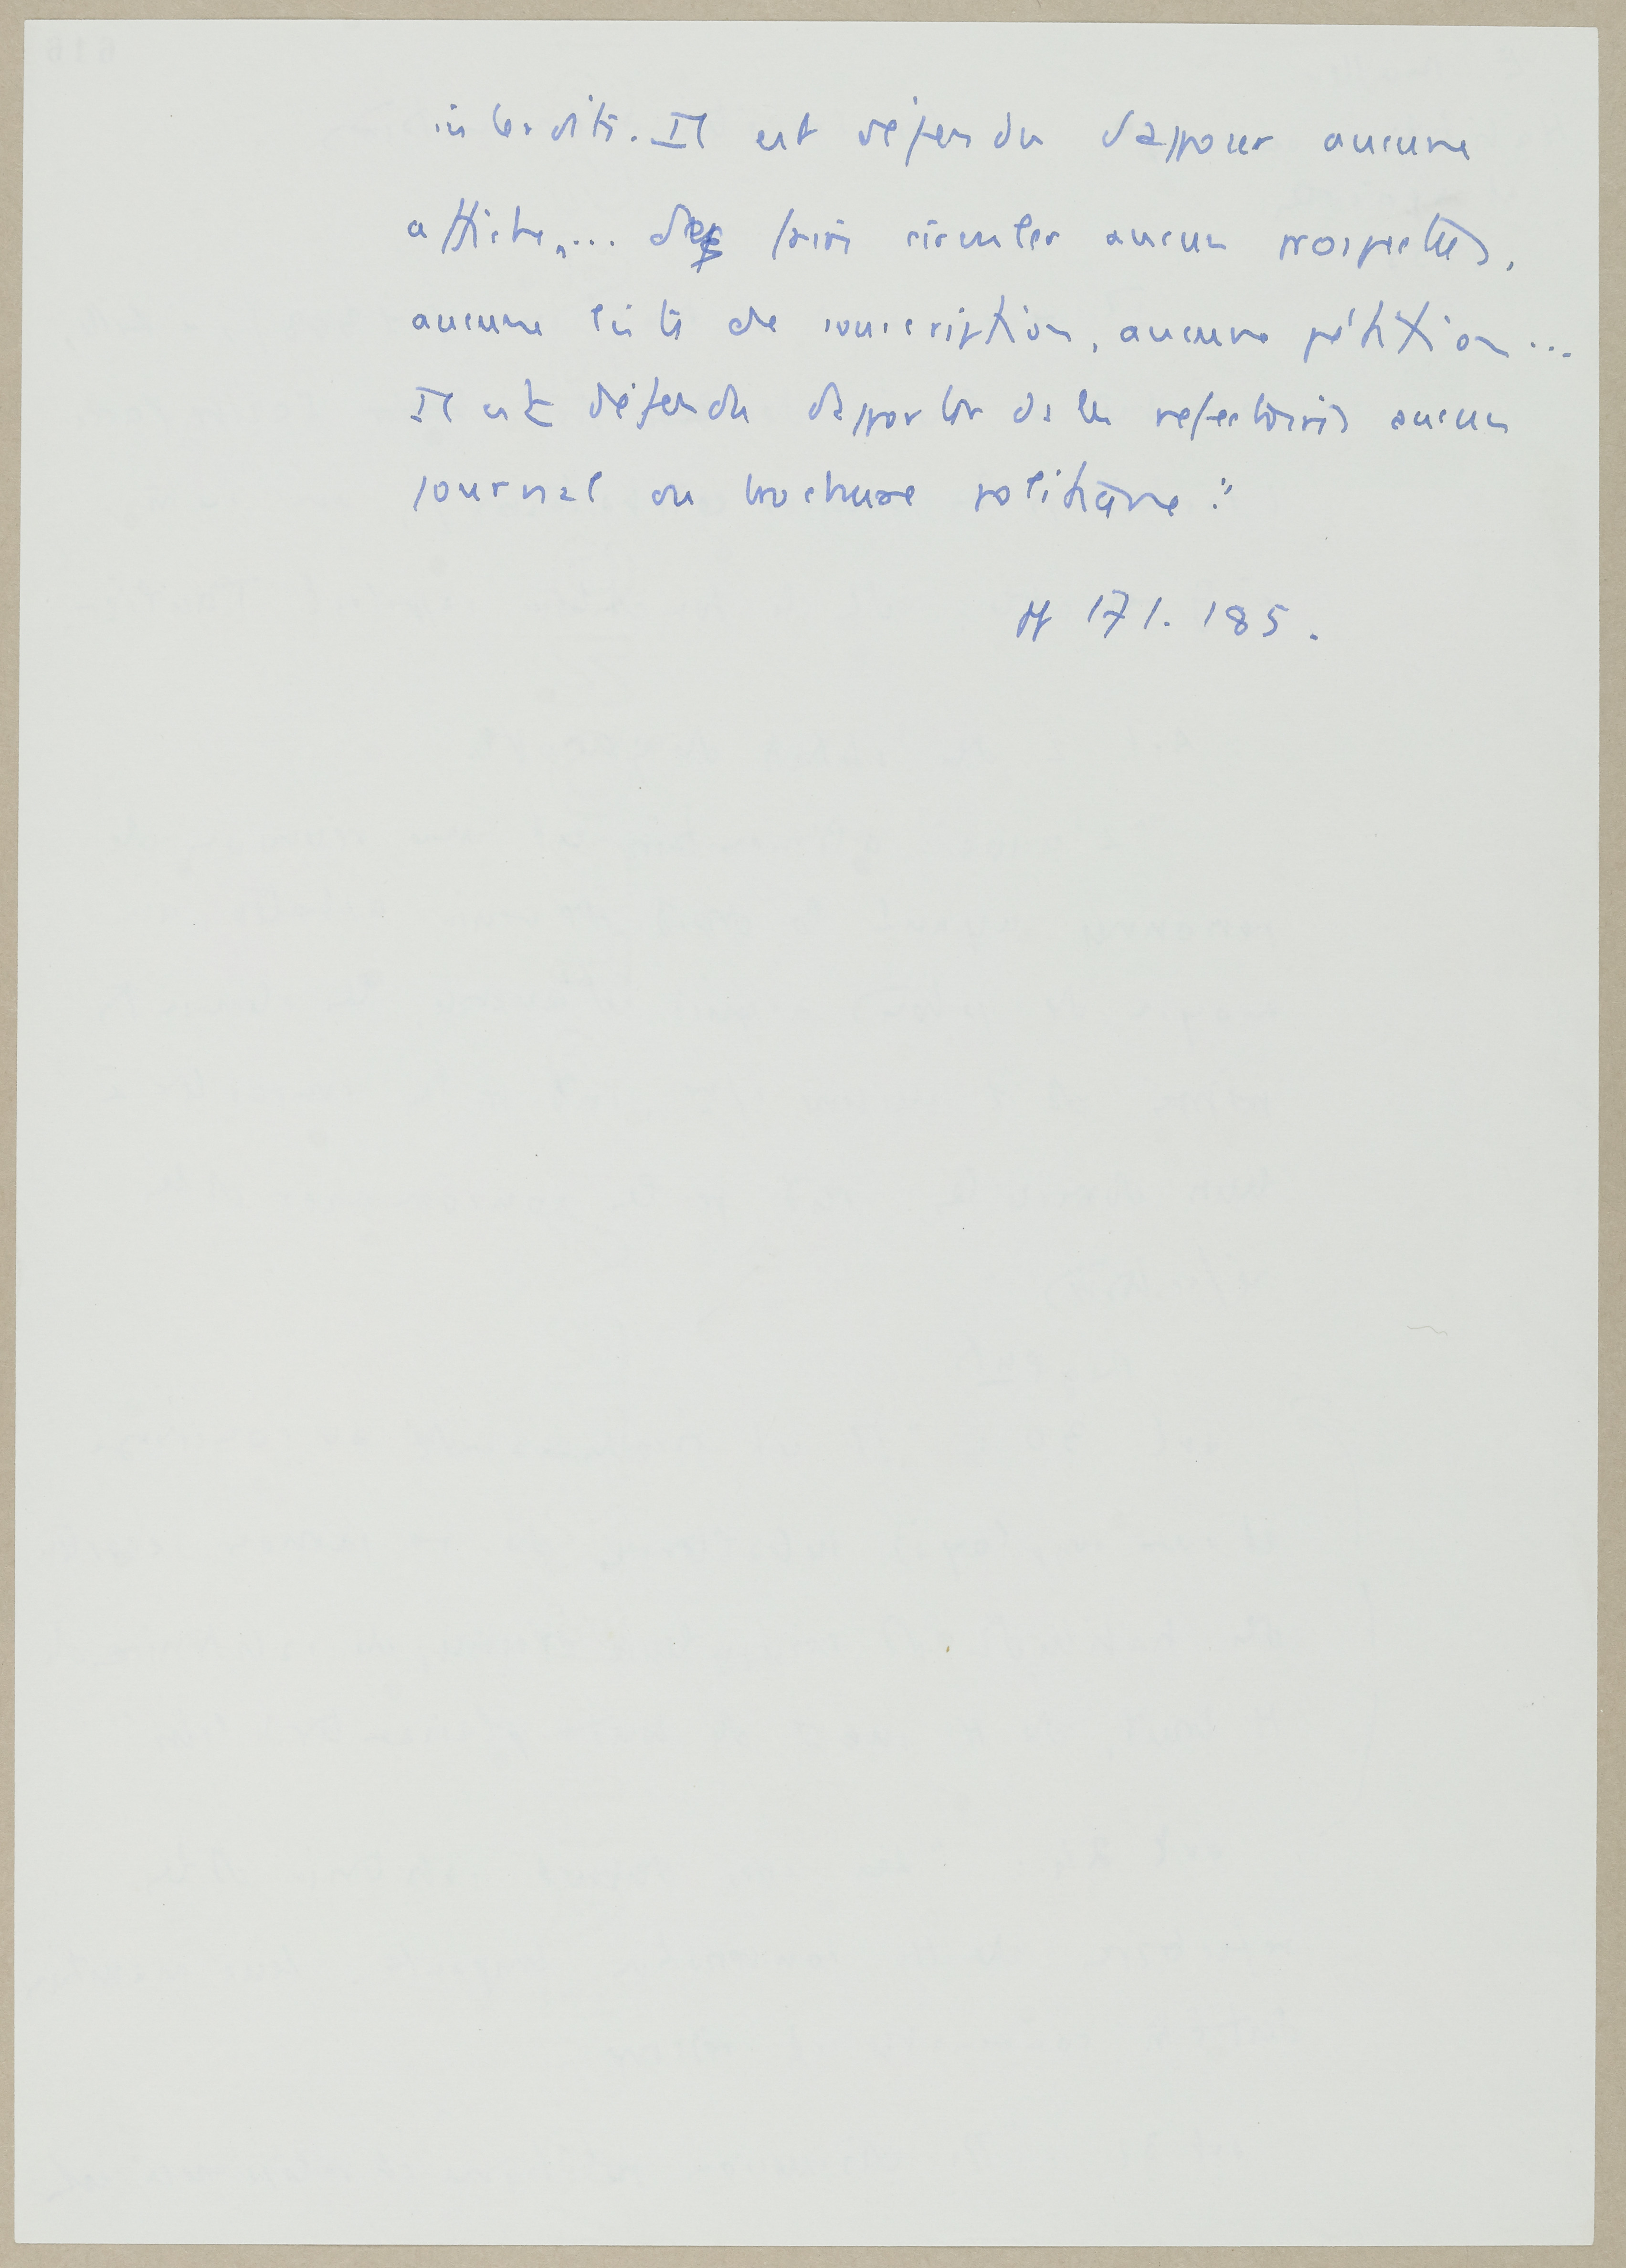 interdits. Il est défendu d'apposer aucune
affiche, ... de faire circuler aucun prospectus,
aucune liste de souscription, aucune pétition ...
Il est défendu d'apporter ds les refectoires aucun
journal ou brochure politique :"
171. 185.